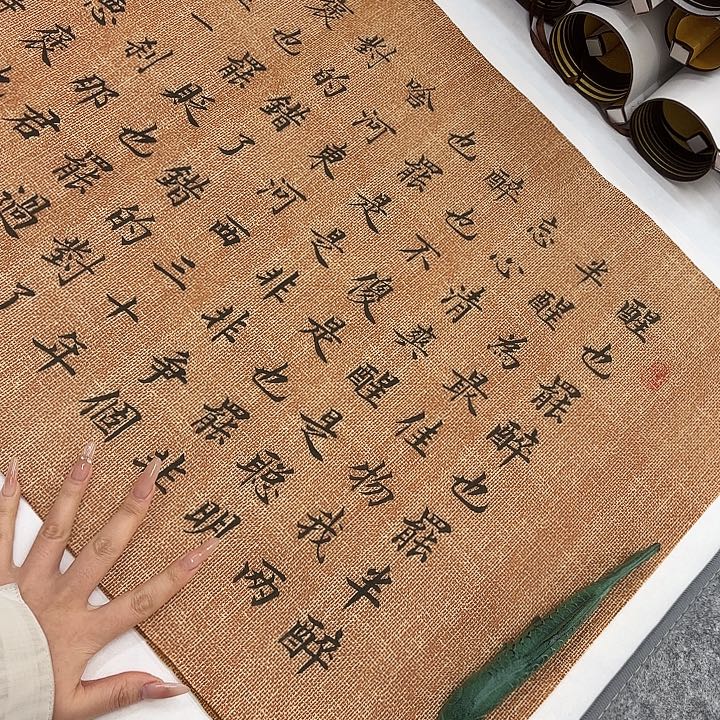 醒也罷醉也罷半醉
半醒為最佳物我兩
忘心清爽醒是聰明
醉也不傻是也罷非
也罷是是非非爭個
啥河東河西三十年
對的錯了錯的對了
也罷貶也罷過
一剎那君
褒